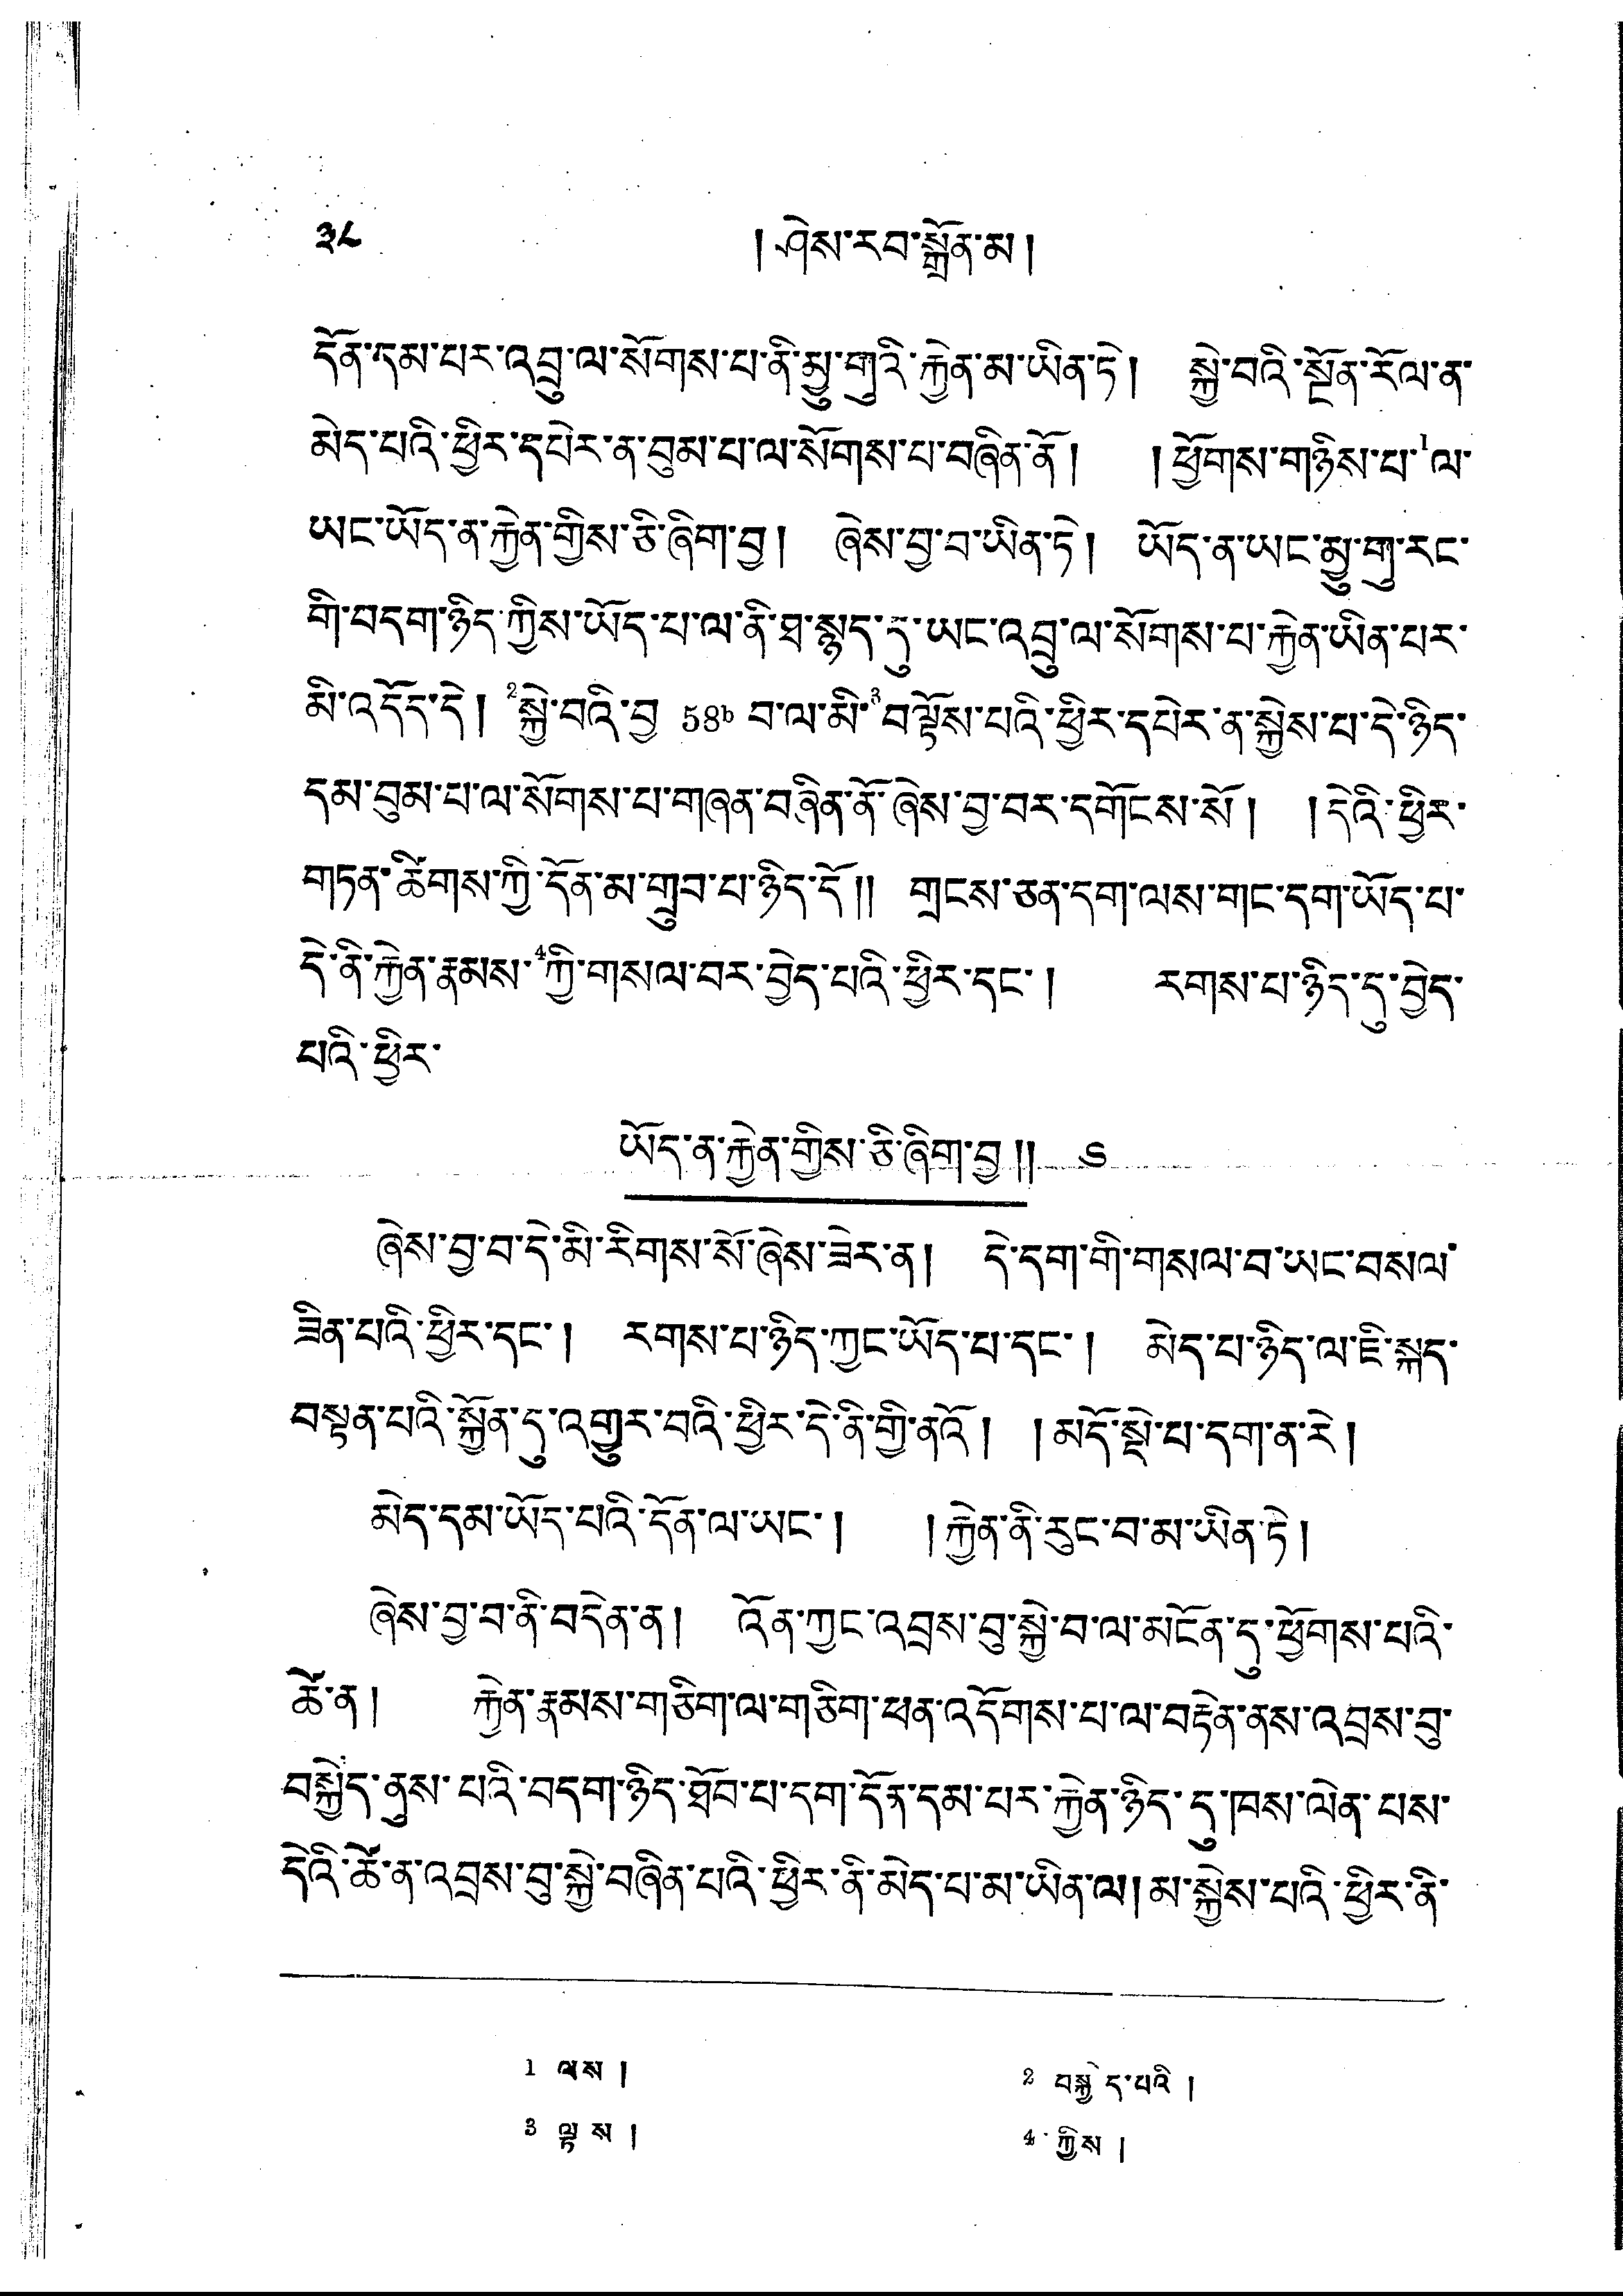 ༣༨ །ཤེས་རབ་སྒྲོན་མ།
དོན་དམ་པར་འབྲུ་ལ་སོགས་པ་ནི་མྱུ་གུའི་རྐྱེན་མ་ཡིན་ཏེ། སྐྱེ་བའི་སྔོན་རོལ་ན་
མེད་པའི་ཕྱིར་དཔེར་ན་བུམ་པ་ལ་སོགས་པ་བཞིན་ནོ། །ཕྱོགས་གཉིས་པ་1ལ་
ཡང་ཡོད་ན་རྐྱེན་གྱིས་ཅི་ཞིག་བྱ། ཞེས་བྱ་བ་ཡིན་ཏེ། ཡོད་ན་ཡང་མྱུ་གུ་རང་
གི་བདག་ཉིད་ཀྱིས་ཡོད་པ་ལ་ནི་ཐ་སྙད་དུ་ཡང་འབྲུ་ལ་སོགས་པ་རྐྱེན་ཡིན་པར་
མི་འདོད་དེ། 2སྐྱེ་བའི་བྱ 58b བ་ལ་མི་3བལྟོས་པའི་ཕྱིར་དཔེར་ན་སྐྱེས་པ་དེ་ཉིད་
དམ་བུམ་པ་ལ་སོགས་པ་གཞན་བཞིན་ནོ་ཞེས་བྱ་བར་དགོངས་སོ། །དེའི་ཕྱིར་
གཏན་ཚིགས་ཀྱི་དོན་མ་གྲུབ་པ་ཉིད་དོ།། གྲངས་ཅན་དག་ལས་གང་དག་ཡོད་པ་
དེ་ནི་རྐྱེན་རྣམས་4ཀྱི་གསལ་བར་བྱེད་པའི་ཕྱིར་དང་། རགས་པ་ཉིད་དུ་བྱེད་
པའི་ཕྱིར་
ཡོད་ན་རྐྱེན་གྱིས་ཅི་ཞིག་བྱ།། ༦
ཞེས་བྱ་བ་དེ་མི་རིགས་སོ་ཞེས་ཟེར་ན། དེ་དག་གི་གསལ་བ་ཡང་བསལ་
ཟིན་པའི་ཕྱིར་དང་། རགས་པ་ཉིད་ཀྱང་ཡོད་པ་དང་། མེད་པ་ཉིད་ལ་ཇི་སྐད་
བསྟན་པའི་སྐྱོན་དུ་འགྱུར་བའི་ཕྱིར་དེ་ནི་གྱི་ནའོ། །མདོ་སྡེ་པ་དག་ན་རེ།
མེད་དམ་ཡོད་པའི་དོན་ལ་ཡང་། །རྐྱེན་ནི་རུང་བ་མ་ཡིན་ཏེ།
ཞེས་བྱ་བ་ནི་བདེན་ན། འོན་ཀྱང་འབྲས་བུ་སྐྱེ་བ་ལ་མངོན་དུ་ཕྱོགས་པའི་
ཚེ་ན། རྐྱེན་རྣམས་གཅིག་ལ་གཅིག་ཕན་འདོགས་པ་ལ་བརྟེན་ནས་འབྲས་བུ་
བསྐྱེད་ནུས་པའི་བདག་ཉིད་ཐོབ་པ་དག་དོན་དམ་པར་རྐྱེན་ཉིད་དུ་ཁས་ལེན་པས་
དེའི་ཚེ་ན་འབྲས་བུ་སྐྱེ་བཞིན་པའི་ཕྱིར་ནི་མེད་པ་མ་ཡིན་ལ།མ་སྐྱེས་པའི་ཕྱིར་ནི་
1 ལས། 2 བསྐྱེད་པའི།
3 ལྟས། 4 ཀྱིས།